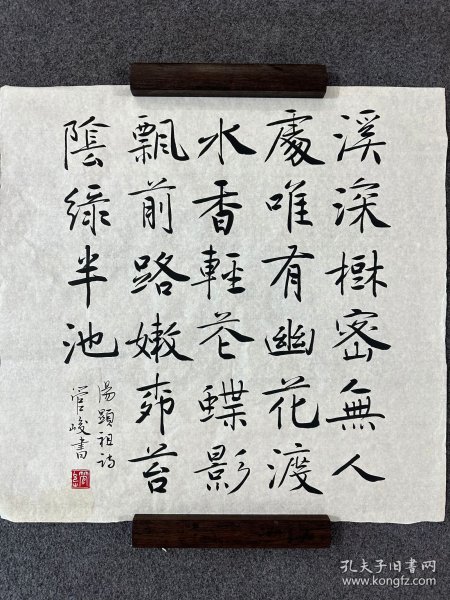 溪深樹密無人
處唯有幽花渡
水香輕花蝶影
飄前路嫩𦭘苔
陰綠半池
湯顯祖詩
管峻書
孔夫子旧书网
www.kongfz.com